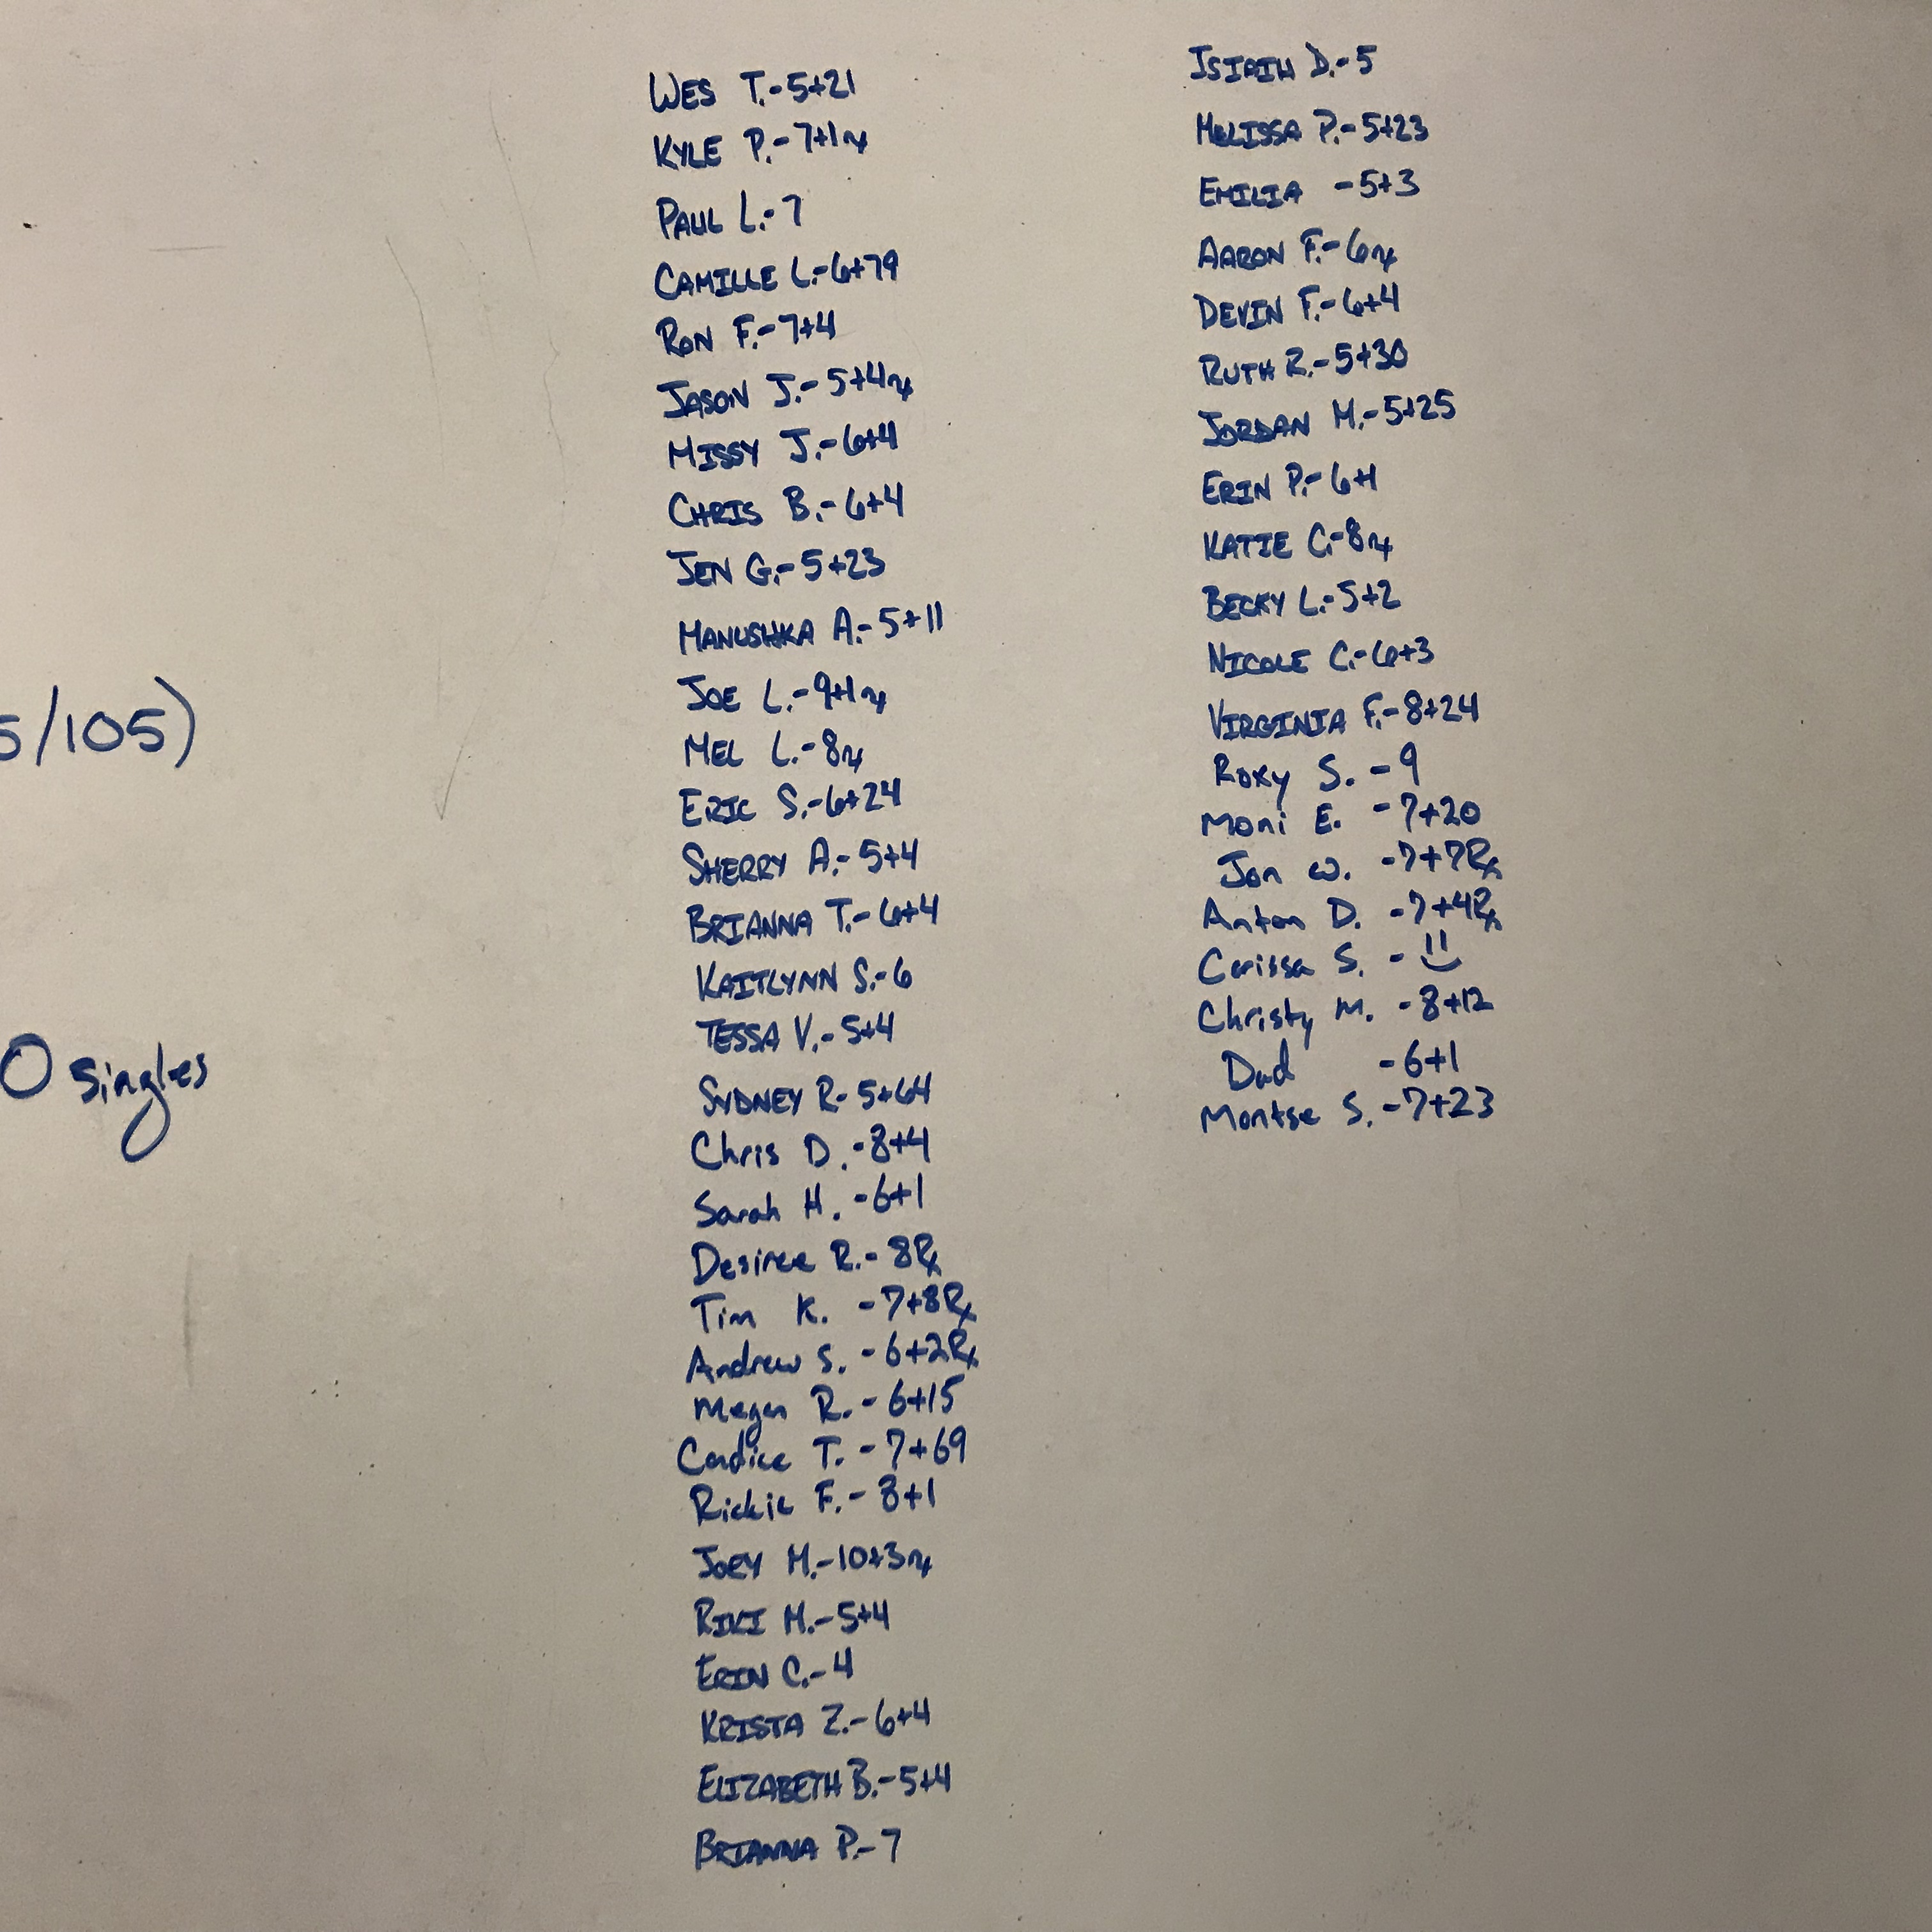 5/105)
0 singles
WES T.-5+21
KYLE P.-7+1rx
PAUL L.-7
CAMILLE L.-6+79
RON F.-7+4
JASON J.-5+4rx
MISSY J.-6+4
CHRIS B.-6+4
JEN G.-5+23
MANUSHKA A.-5+11
JOE L.-9+1rx
MEL L.-8rx
ERIC S.-6+24
SHERRY A.-5+4
BRIANNA T.-6+4
KAITLYNN S.-6
TESSA V.-5+4
SYDNEY R-5+64
Chris D.-8+4
Sarah H.-6+1
Desiree R.-8Rx
Tim K.-7+8Rx
Andrew S.-6+2Rx
Megan R.-6+15
Candice T.-7+69
Rickie F.-8+1
JOEY M.-10+3rx
RIKI M.-5+4
ERIN C.-4
KRISTA Z.-6+4
ELIZABETH B.-5+4
BRIANNA P.-7
ISIAIH D.-5
MELISSA P.-5+23
EMILIA -5+3
AARON F.-6rx
DEVIN F.-6+4
RUTH R.-5+30
JORDAN M.-5+25
ERIN P.-6+1
KATIE C.-8rx
BECKY L.-5+2
NICOLE C.-6+3
VIRGINIA F.-8+24
Roxy S. -9
Moni E. -7+20
Jon W. -7+7Rx
Anton D. -7+4Rx
Carissa S. -
Christy M. -8+12
Dad -6+1
Montse S. -7+23